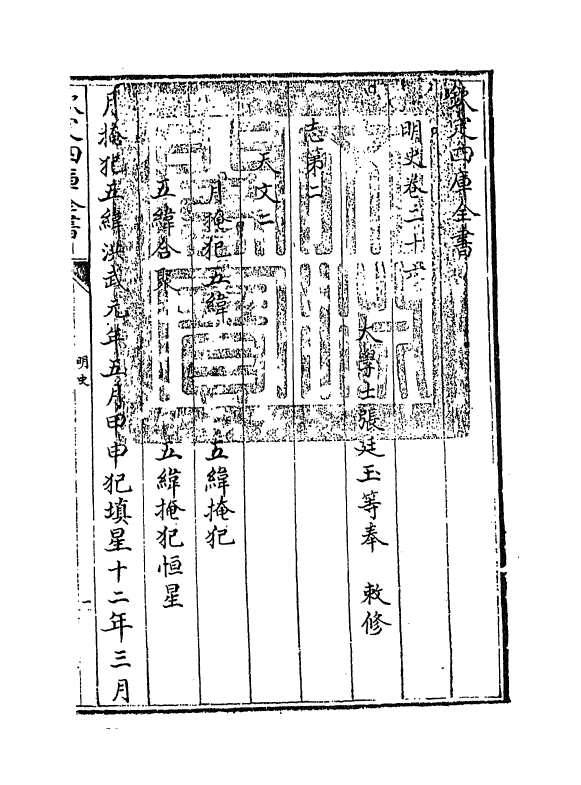 欽定四庫全書
明史卷二十六
大學士張廷玉等奉 敕修
志第二
天文二
月掩犯五緯 五緯掩犯
五緯合聚 五緯掩犯恒星
月掩犯五緯洪武元年五月甲申犯填星十二年三月
欽定四庫全書
明史
一